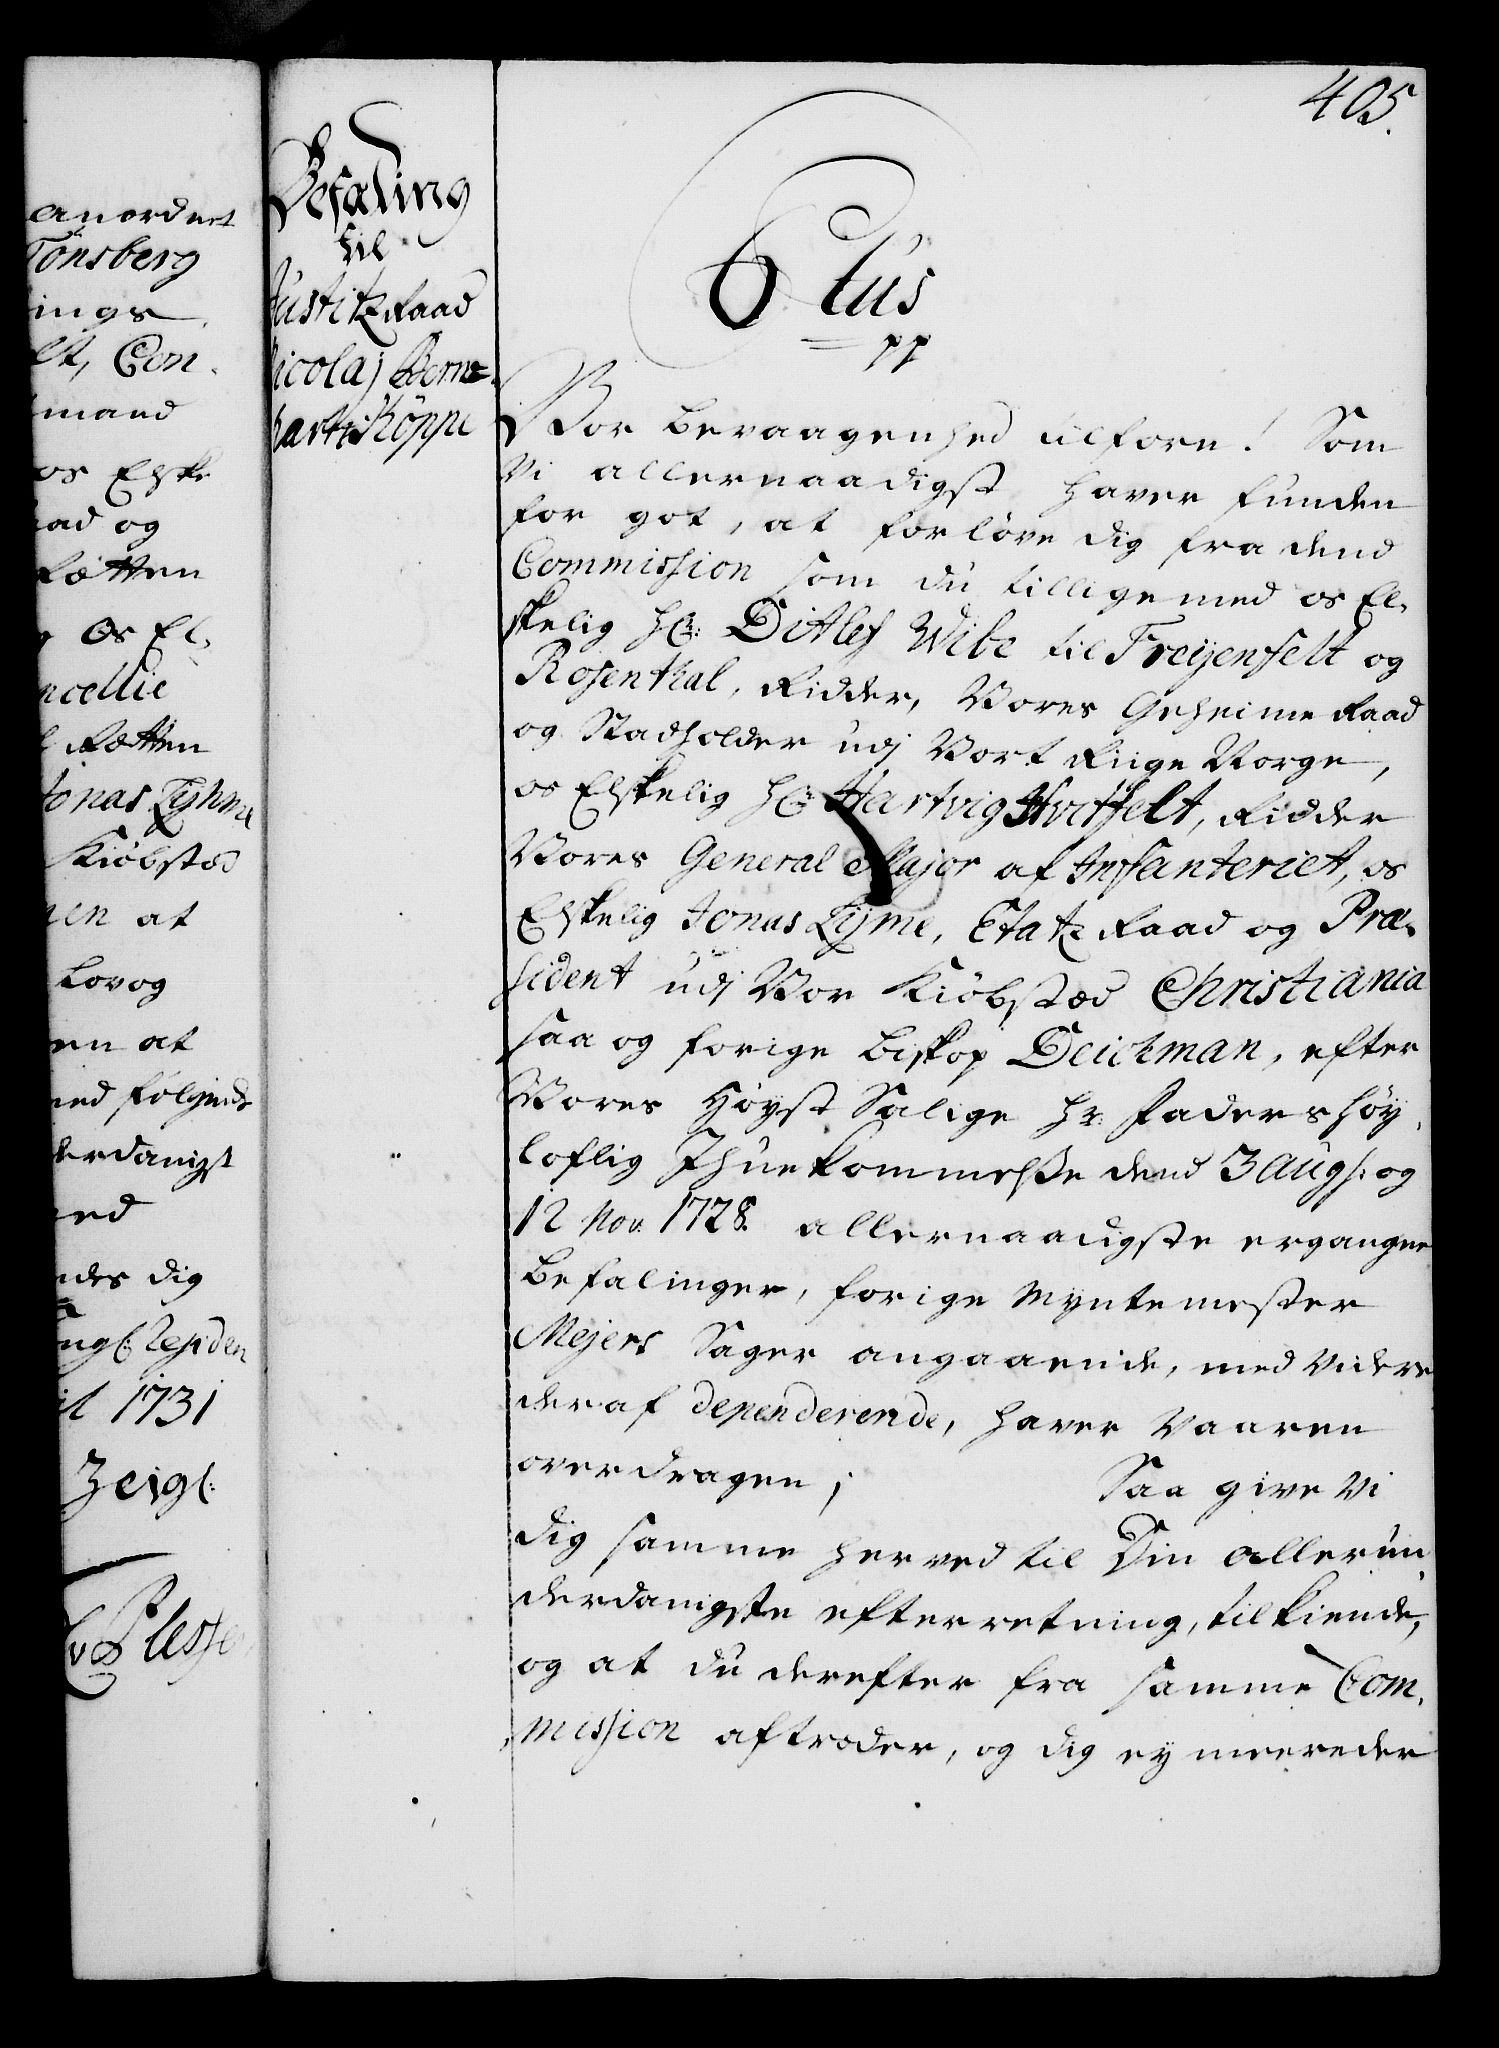 405.
anordnet
Tönsberg
ings
lt, Con-
mand
os Elske
aad og
Rætten
og Os El-
ncellie
Rætten
Jonas Lyhme
Kiöbstæd
nen at
Lov og
en at
med følgende
derdanigst
ved
ndes dig
ngl: Residen
il 1731
Zeigl:
v Plesse
Befaling
til
Justitz Raad
Nicolaj Bern-
hart Köppe
C Ctus
pp
Vor bevaagenhed tilforn! Som
Vi allernaadigst haver funden
for got, at forlöve dig fra dend
Commission som du tillige med os El-
skelig Hr: Ditlef Wibe til Freijenfelt og
Rosenthal, Ridder, Vores Geheime Raad
og Stadholder udj Vort Riige Norge,
os Elskelig Hr: Hartvig Hvitfelt, Ridder
Vores General Major af Infanteriet, os
Elskelig Jonas Lijme, Etatz Raad og Præ-
sident udj Vor Kiöbstæd Christiania
saa og forige biskop Deichman, efter
Vores Höyst Salige Hr: Faders höy-
loflig Ihuekommelse dend 3 Augs: og
12 Nov. 1728. allernaadigste ergangne
befalinger, forige Myntemester
Mejers Sager angaaende, med videre
deraf dependerende, haver vaaren
overdragen; Saa give Vi
dig samme herved til Din allerun-
derdanigste efterretning, tilkiende,
og at du derefter fra samme Com-
mission aftræder, og dig ey meere der